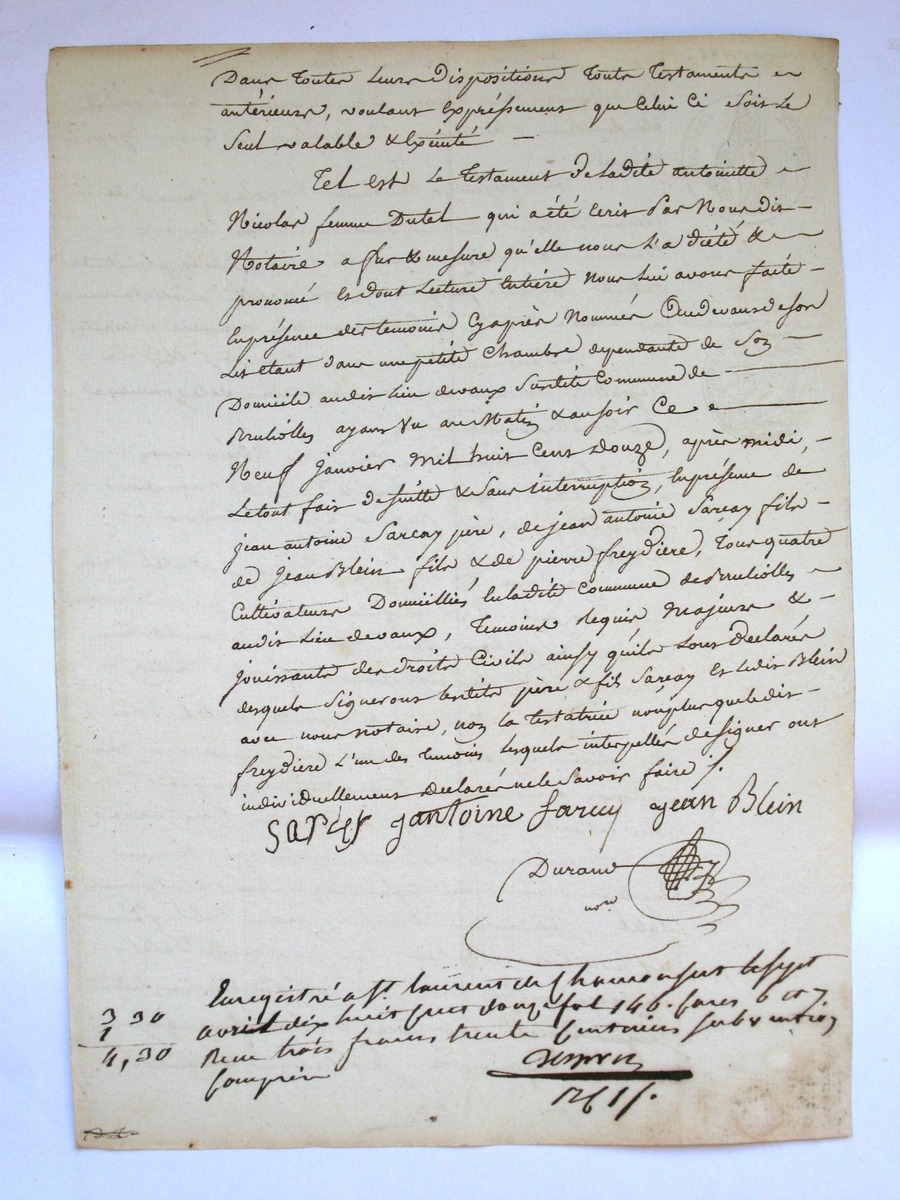 Dans toutes leurs dispositions tous testaments
antérieurs, voulant expréssement que Celui Ci soit le
Seul valable & Exécuté —
Tel est le testament de ladité antoinette
Nicolas femme Dutel qui a été Ecrit Par Nous dit —
Notaire a fur & mesure qu'elle nous l'a dicté &
prononcé Et dont Lecture Entiére Nous lui avons faite —
En présence des temoins Cy après Nommés Audevant de son
Lit etant dans une petité Chambre dependante de son —
Domicile audit lieu devaux Susdité Commune de —
Bruliolles ayant Vu au Matin & au soir Ce —
Neuf janvier mil huit Cent Douze, après midi, —
Le tout fait de suitte & sans interruption, En présence de
jean antoine Sarcay pére, de jean antoine Sarcay fils —
de jean Blein fils & de pierre freydiére, tous quatre
Cultivateurs Domicilliés En ladité Commune de Brulliolles —
audit Lieu devaux, temoins Requis Majeurs & —
jouissants des droits Civils ainsy qu'ils l'ont declaré
desquels Signerons lesdits pére & fils Sarcay Et ledit Blein
avec nous notaire, non la testatrice nonplus que ledit —
freydiere l'un des temoins lesquels interpellés de signer ont
individuellement declarés ne le Savoir faire /.
Sarcay jantoine Sarcay jean Blein
Durand
nore
Enregistré a St. laurent de Chamousset le sept
avril dix huit cent douze fol 146. Cases 6 et 7
3 30
Recu trois francs trente Centimes subvention
1
4,30
Comprise